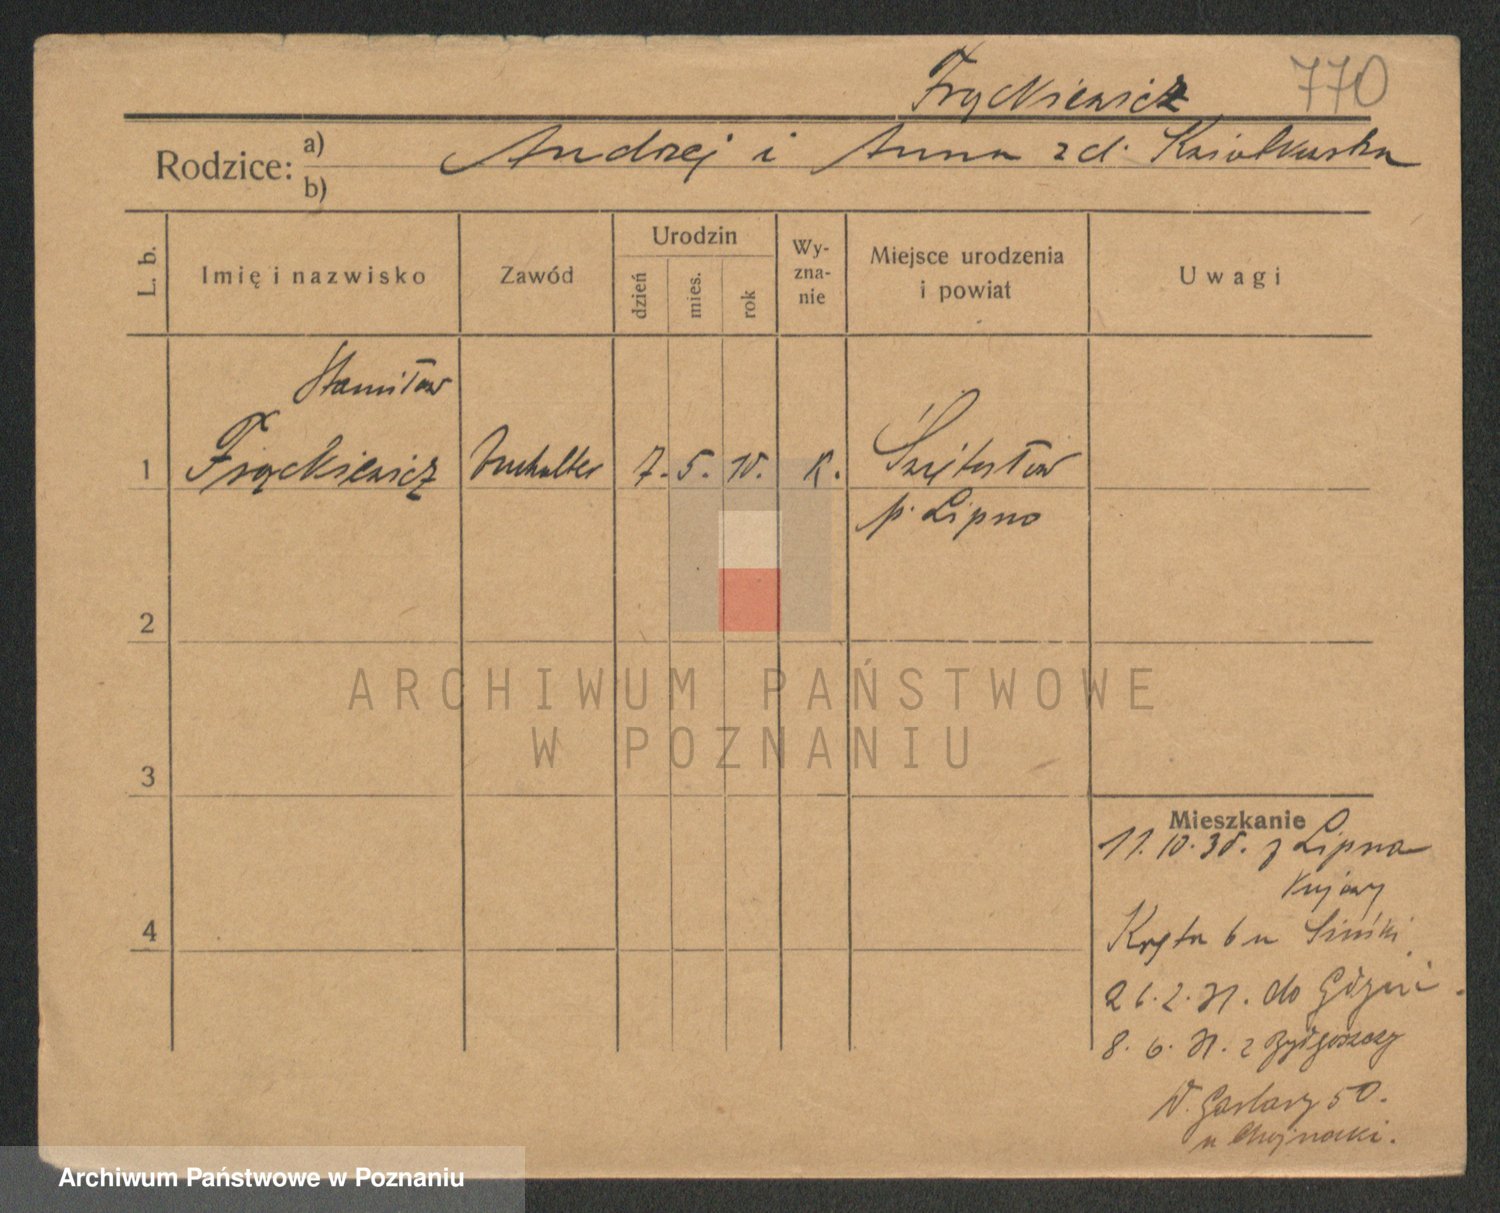 Frąckiewicz 770
Rodzice: a) Andrzej i Anna z d.
b)
L. b. Imię i nazwisko Zawód Urodzin dzień mies. rok Wy-
zna-
nie Miejsce urodzenia
i powiat Uwagi
Stanisław
1 Frąckiewicz buchalter 7. 5. 10. K.
p. Lipno
2
ARCHIWUM PAŃSTWOWE
W POZNANIU
3
Mieszkanie
11. 10. 30. z Lipna
Kujawy
4
Kręta 6 u
26. 2. 31. do Gdyni.
8. 6. 31. z Bydgoszczy
W. Garbary 50.
u Chojnacki.
Archiwum Państwowe w Poznaniu